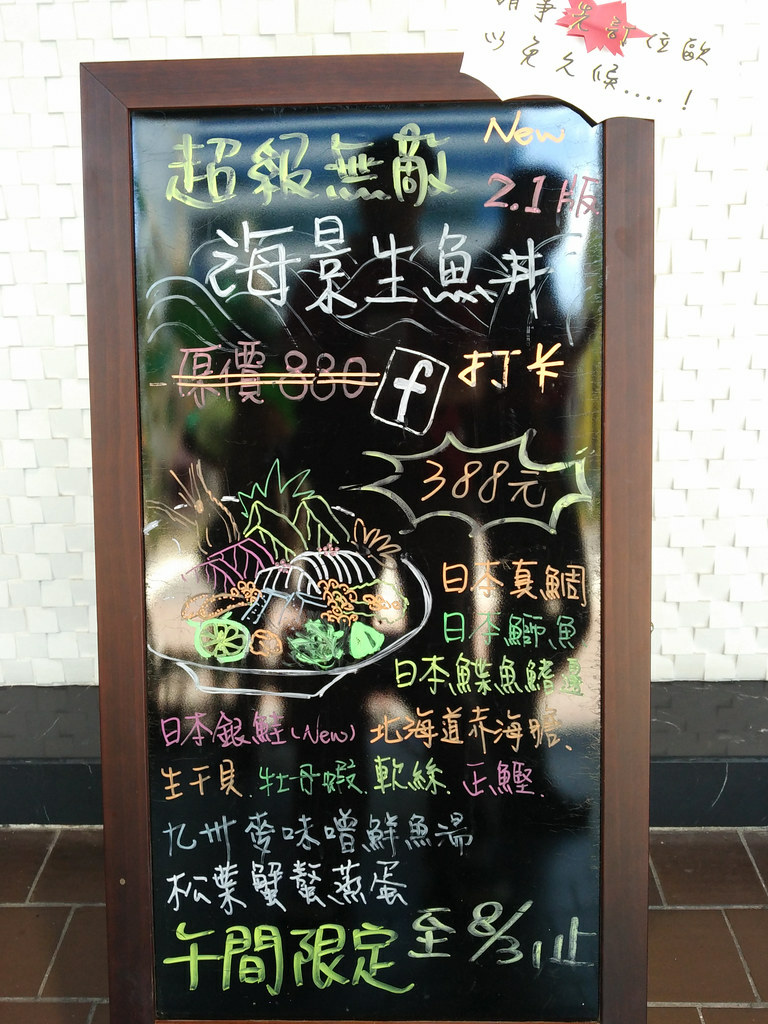 請事先訂位歐
以免久候.....!
超級無敵 New
2.1版
海景生魚丼
原價 880 f 打卡
388元
日本真鯛
日本鰤魚
日本鰈魚鰭邊
日本銀鮭(New) 北海道赤海膽、
生干貝.牡丹蝦.軟絲.正鰹.
九州麥味噌鮮魚湯
松葉蟹蟹蒸蛋
午間限定 至8/31止